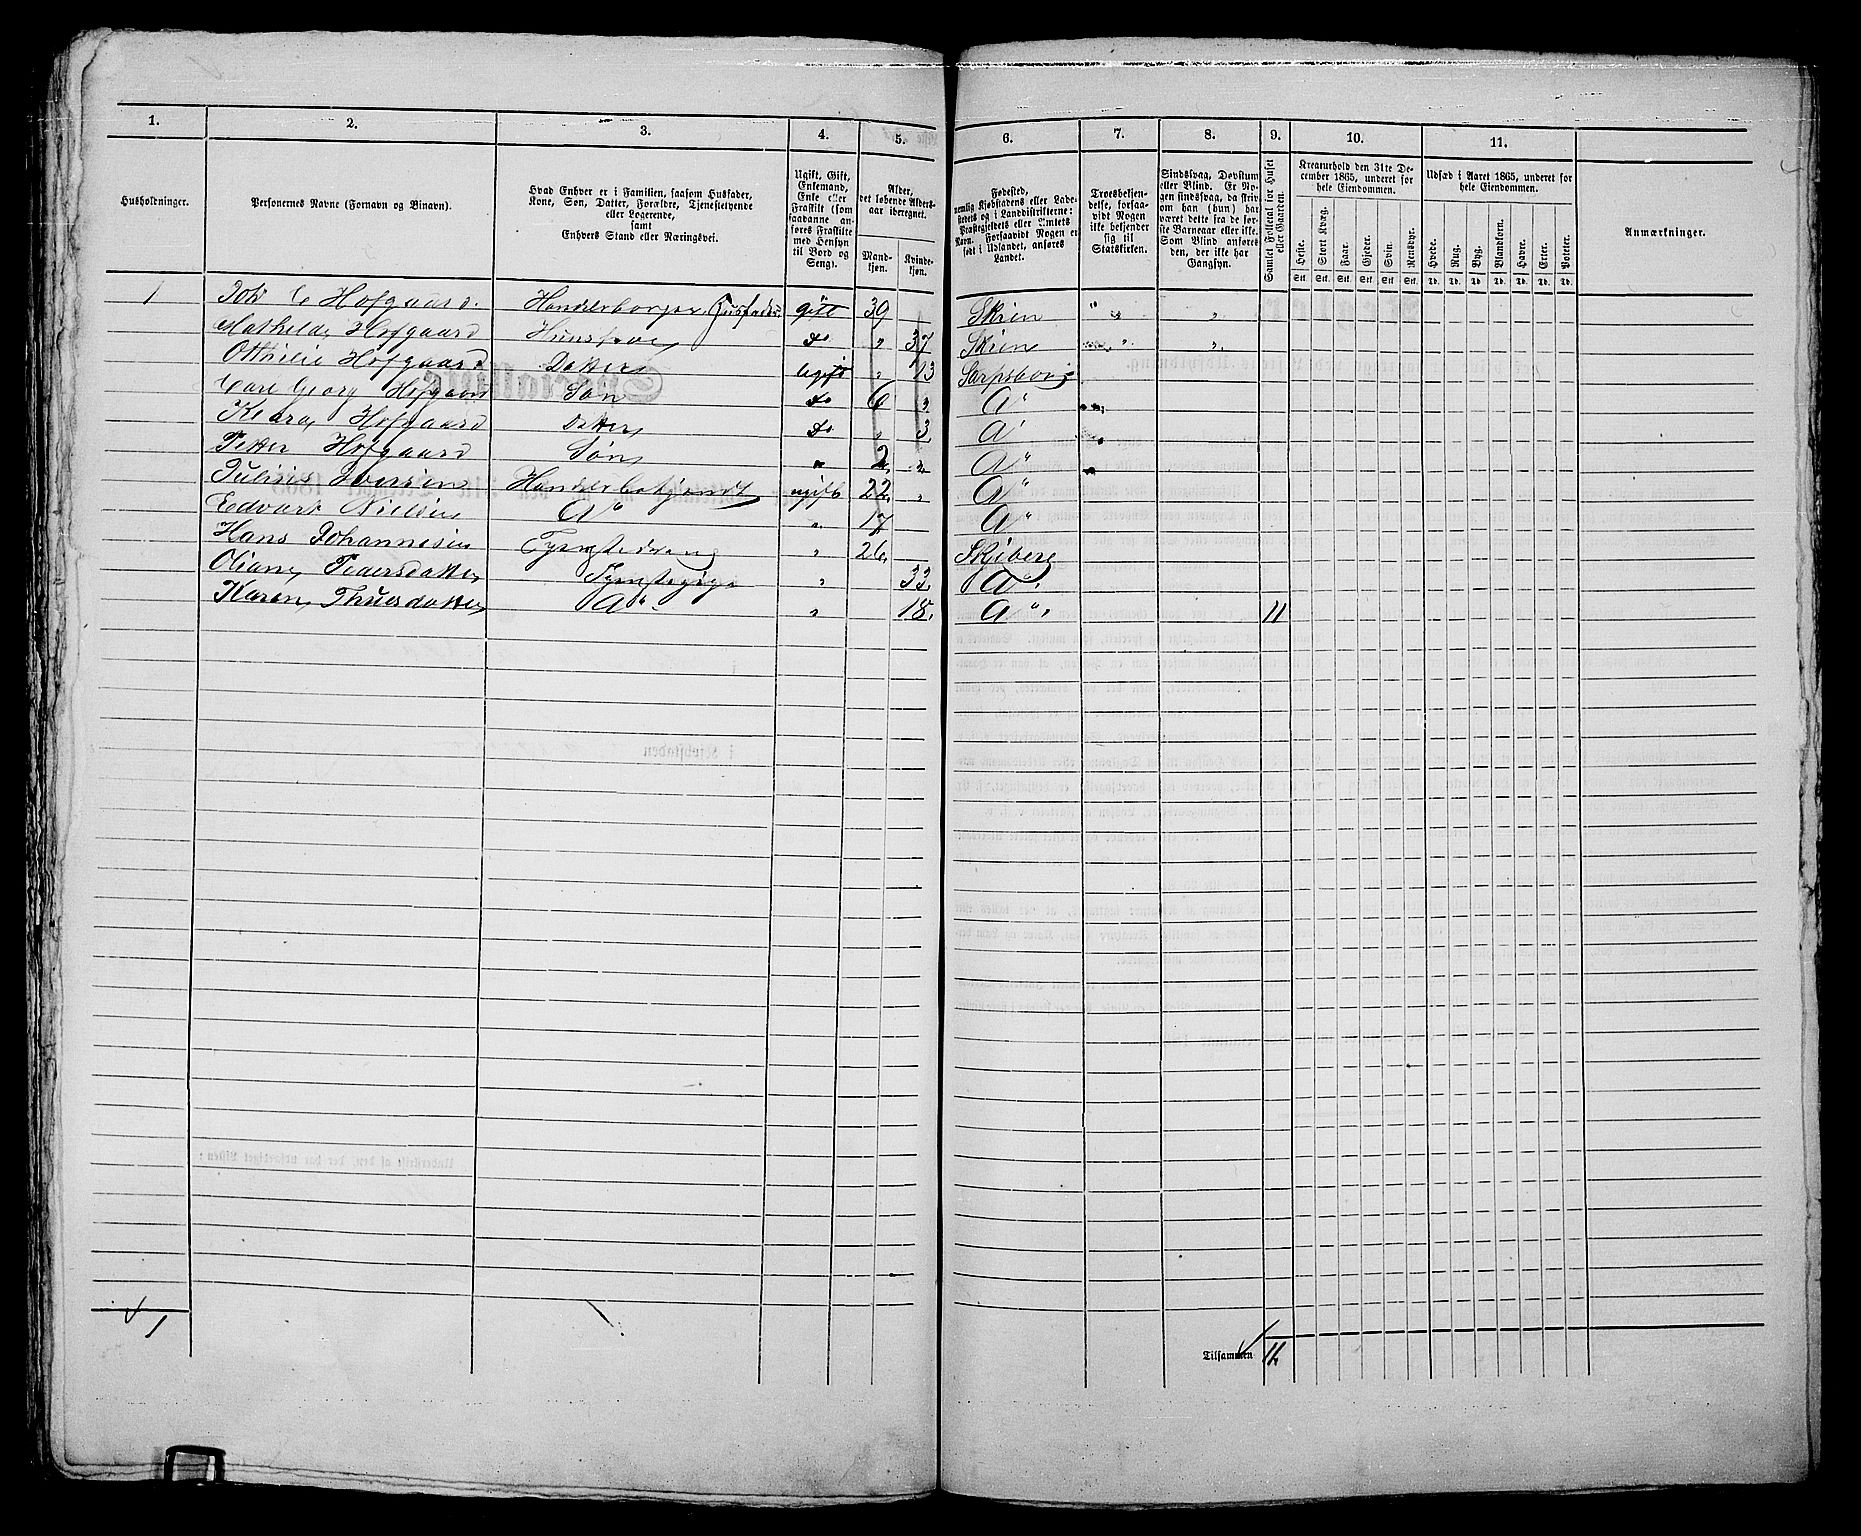 1. 2. 3. 4. 5. 6. 7. 8. 9. 10. 11.
Husholdninger.
Personernes Navne (Fornavn og Binavn).
Hvad Enhver er i Familien, saasom Husfader,
Kone, Søn, Datter, Forældre, Tjenestetyende
eller Logerende,
samt
Enhvers Stand eller Næringsvei.
Ugift, Gift,
Enkemand,
Enke eller
Fraskilt (som
saadanne an-
føres Fraskilte
med Hensyn
til Bord og
Seng).
Alder,
det løbende Alders-
aar iberegnet.
Mand-
kjøn.
Kvinde-
kjøn.
Fødested,
nemlig Kjøbstadens eller Lade-
stedets og i Landdistrikterne:
Præstegjeldets eller Amtets
Navn. Forsaavidt Nogen er
født i Udlandet, anføres
Landet.
Troesbekjen-
delse, forsaa-
vidt Nogen
ikke bekjender
sig til
Statskirken.
Sindssvag, Døvstum
eller Blind. Er No-
gen sindssvag, da skriv
om han (hun) har
været dette fra de før-
ste Barneaar eller ikke.
Som Blind anføres
den, der ikke har
Gangsyn.
Samlet Folketal for Huset
eller Gaarden.
Kreaturhold den 31te De-
cember 1865, underet for
hele Eiendommen.
Heste. Stort Kvæg. Faar. Gjeder. Svin. Rensdyr.
Stk. Stk. Stk. Stk. Stk. Stk.
Udsæd i Aaret 1865, underet for
hele Eiendommen.
Hvede. Rug. Byg. Blandkorn. Havre. Erter. Poteter.
Td. Td. Td. Td. Td. Td. Td.
Anmærkninger.
1 Joh C Hofgaard. Handelsborger, Husfader gift 39 Skien " " "
Mathilde Hofgaard Huustroe do " 37 Skien " "
Otthilie Hofgaard Datter ugift " 13 Sarpsborg
Carl Georg Hofgaard Søn do 6 " d"
Klara Hofgaard Datter do " 3 d"
Petter Hofgaard Søn " 2 " d"
Julius Iversen Handelsbetjendt ugift 22 " d"
Edvart Nielsen d" " 17 d"
Hans Johannesen " 26 Skjeberg
Oliane Pedersdatter " 33 d"
Karen Thuesdatter d" " 18 d" 11
1
Tilsammen 11